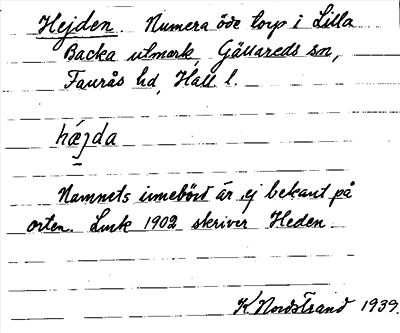 Hejden. Numera öde torp i Lilla
Backa utmark, Gällareds sn,
Faurås hd, Hall l.
hæjda
Namnets innebörd är ej bekant på
orten. Lmk 1902 skriver Heden
K. Nordstrand 1939.